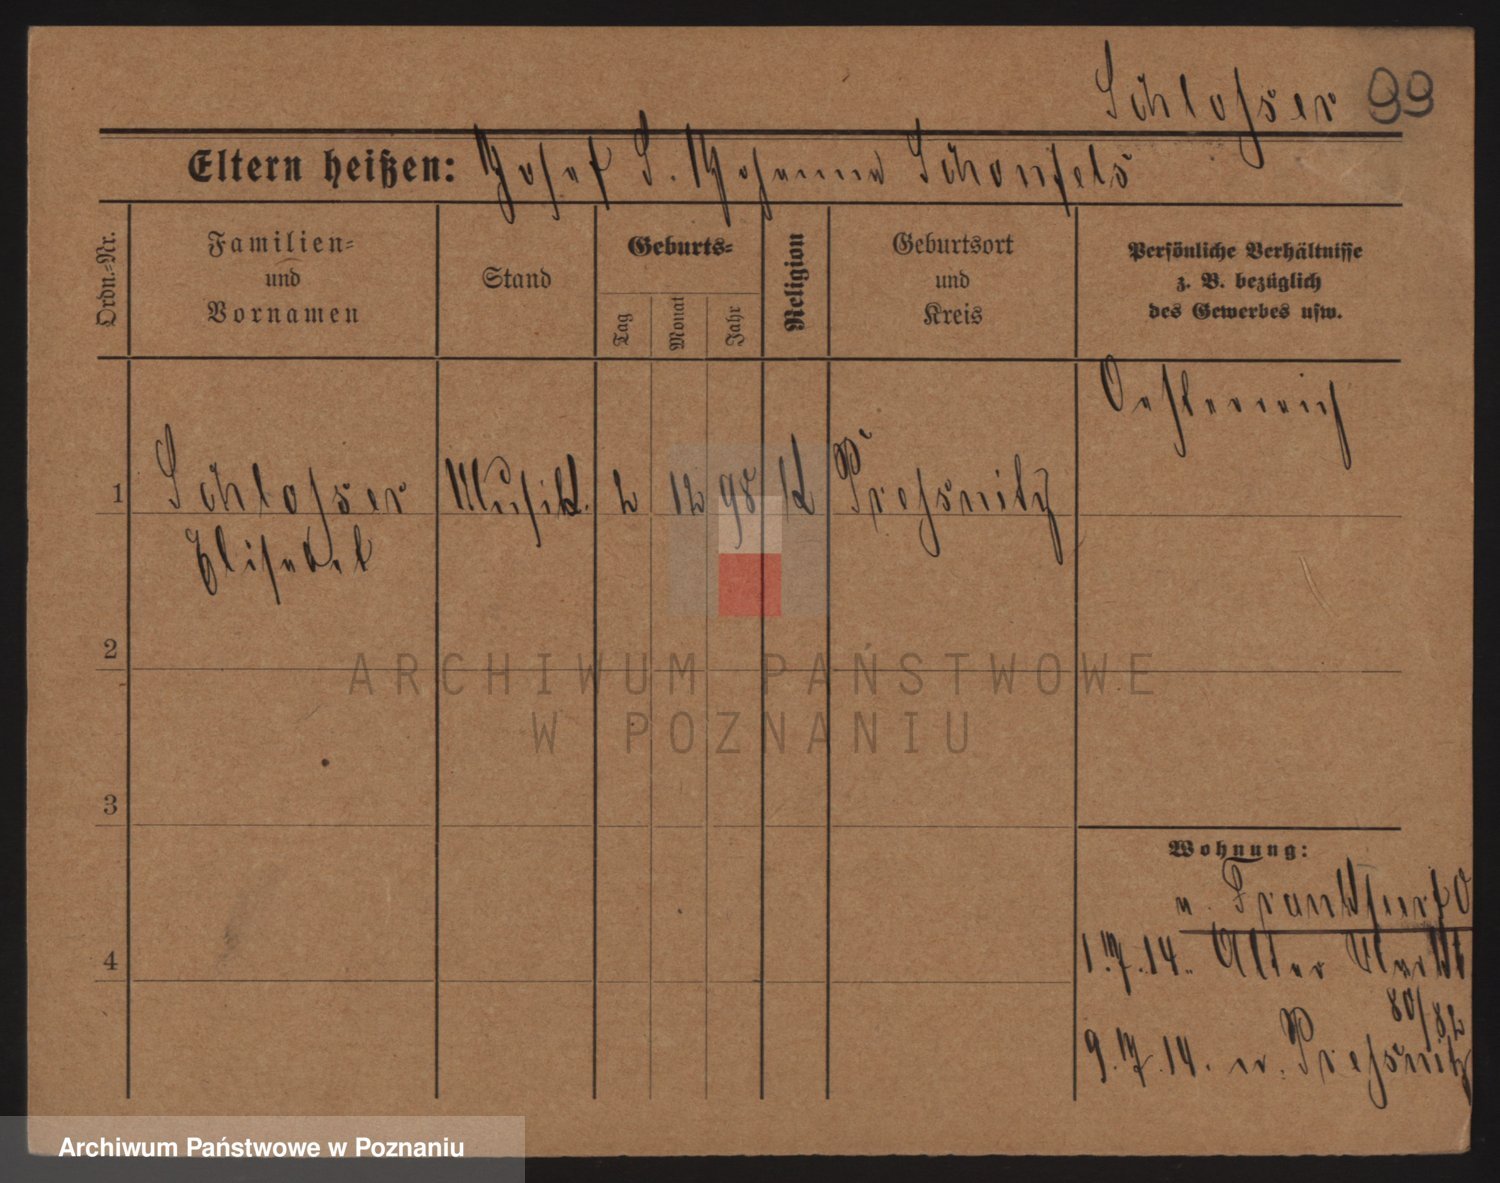 Schlosser 99
Eltern heißen: Josef S. Johanna Schönfels
Ordn.-Nr.
Familien-
und
Vornamen
Stand
Geburts-
Tag
Monat
Jahr
Religion
Geburtsort
und
Kreis
Persönliche Verhältnisse
z. B. bezüglich
des Gewerbes usw.
Oesterreich
1 Schlosser Musik. 2 12 98 K Pressnitz
Elisabet
2
3
4
Wohnung:
v. Frankfurt O
1.7.14. Alter Markt
80/82
9.7.14. n. Pressnitz
ARCHIWUM PAŃSTWOWE
W POZNANIU
Archiwum Państwowe w Poznaniu